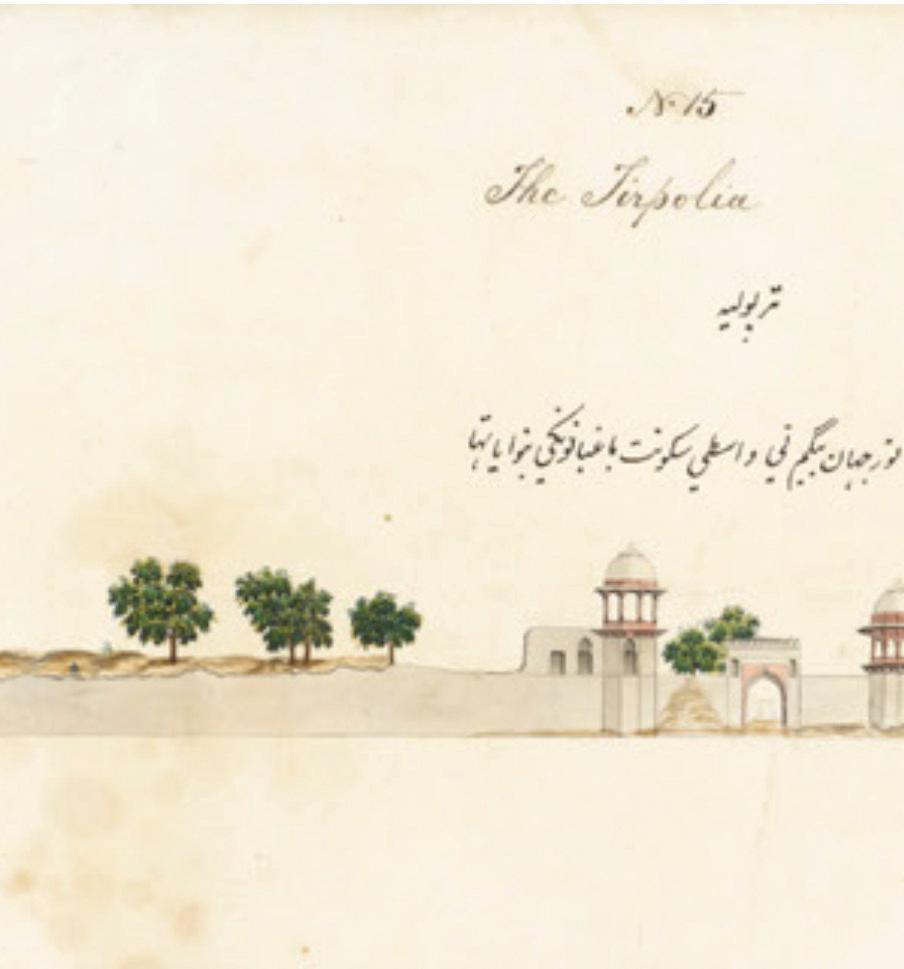 N. 15
The Tirpolia
ترپولیہ
نور جہان بیگم نی واسطی سکونت باغبانونکی بنوایا تہا